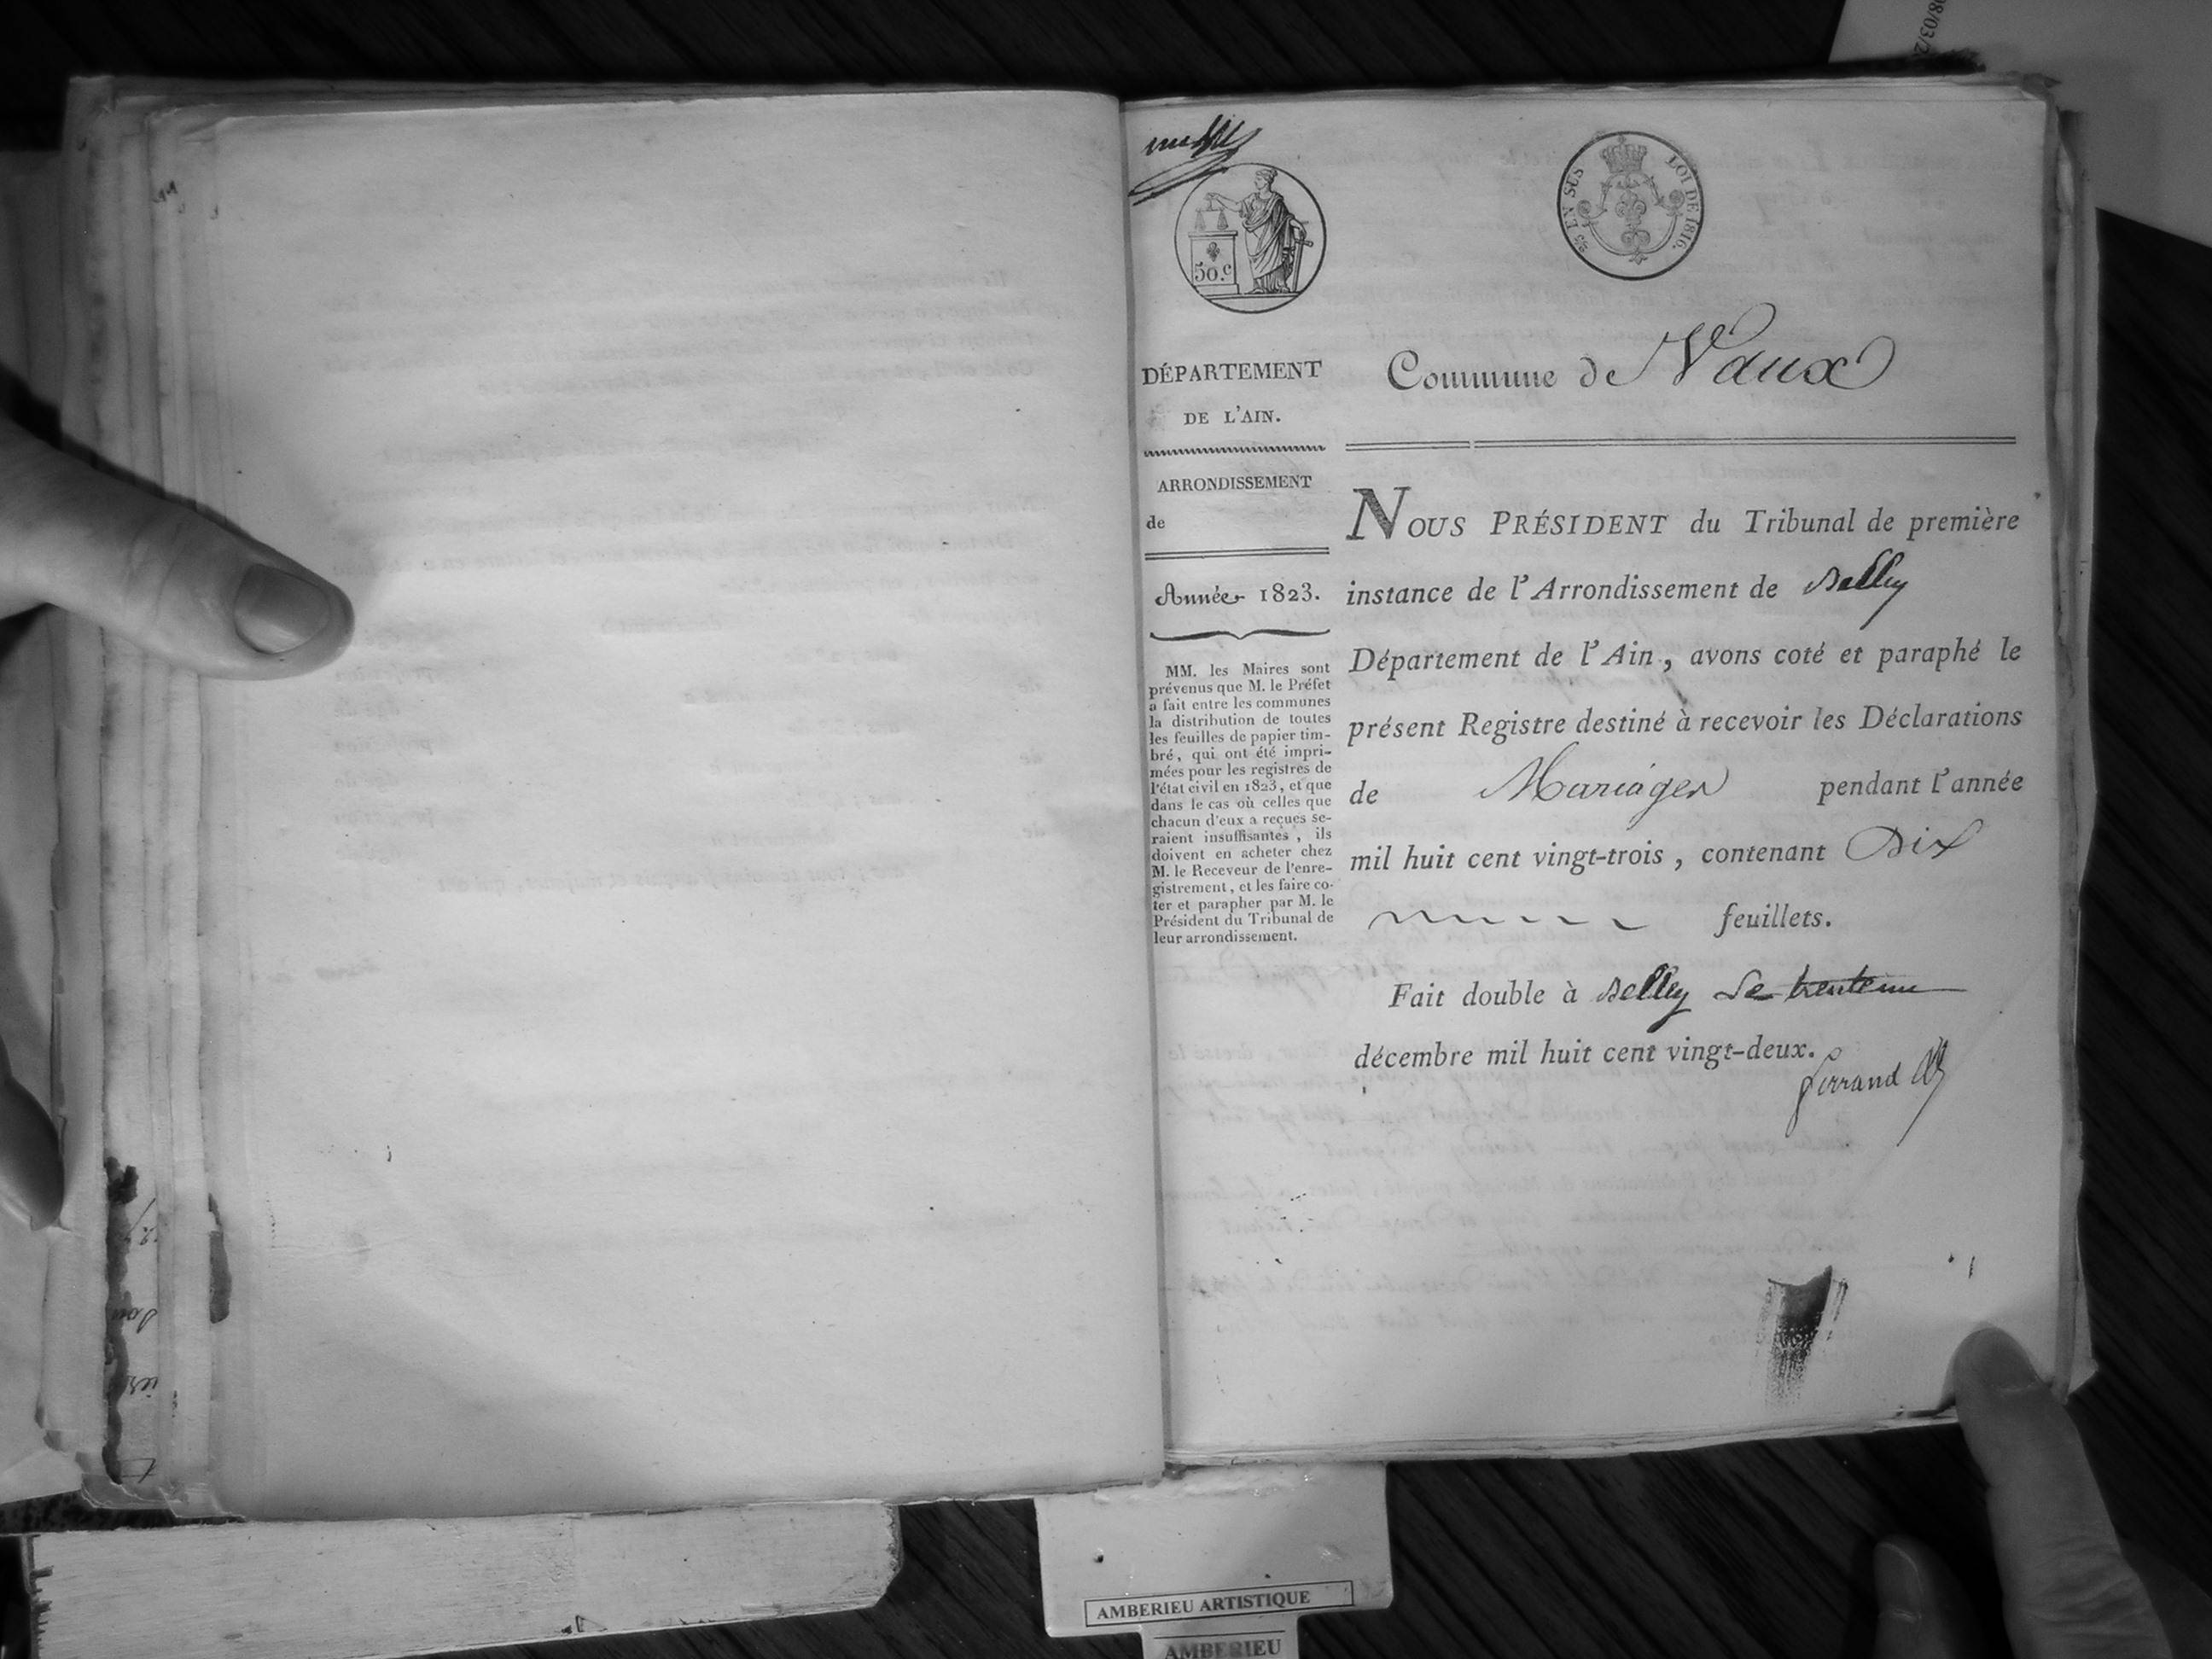 08/03/2
50.c
EN SUS
LOI DE 1816.
DÉPARTEMENT
DE L'AIN.
ARRONDISSEMENT
de
Année 1823.
MM. les Maires sont
prévenus que M. le Préfet
a fait entre les communes
la distribution de toutes
les feuilles de papier tim-
bré, qui ont été impri-
mées pour les registres de
l'état civil en 1823, et que
dans le cas où celles que
chacun d'eux a reçues se-
raient insuffisantes, ils
doivent en acheter chez
M. le Receveur de l'enre-
gistrement, et les faire co-
ter et parapher par M. le
Président du Tribunal de
leur arrondissement.
Commune de Vaux
NOUS PRÉSIDENT du Tribunal de première
instance de l'Arrondissement de Belley
Département de l'Ain, avons coté et paraphé le
présent Registre destiné à recevoir les Déclarations
de Mariages pendant l'année
mil huit cent vingt-trois, contenant Dix
feuillets.
Fait double à Belley Le trente un
décembre mil huit cent vingt-deux.
ferrand
AMBERIEU ARTISTIQUE
AMBERIEU